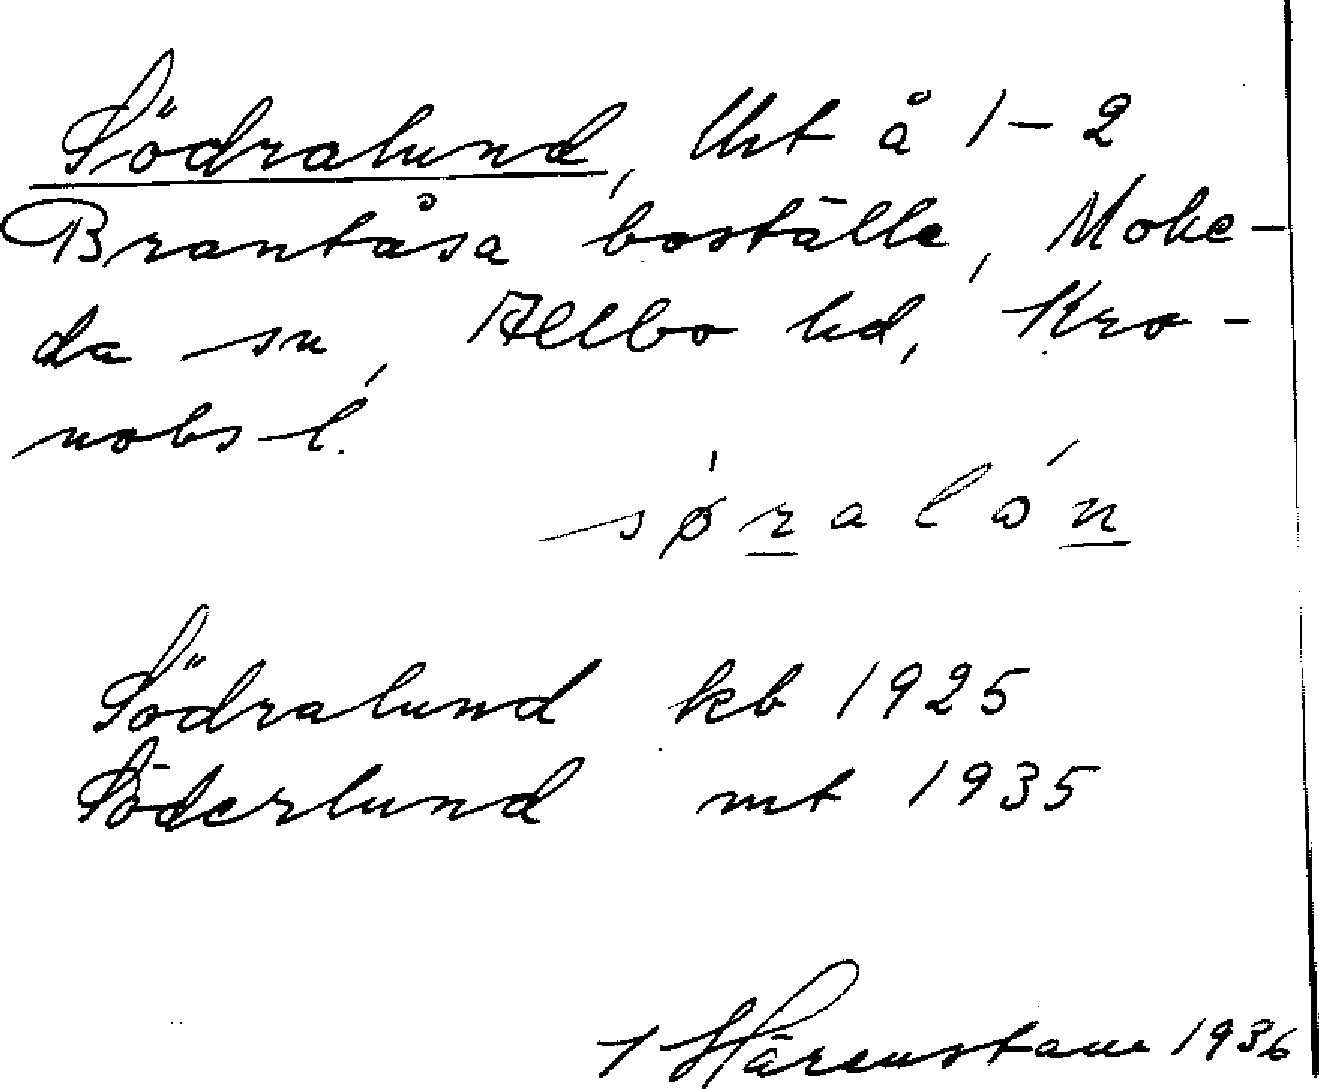 Södralund, Utt å 1-2
Brantåsa boställe, Mohe-
da sn, Allbo hd, Kro-
nobs l.
sø̍ralón
Södralund kb 1925
Söderlund mt 1935
J Härenstam 1936